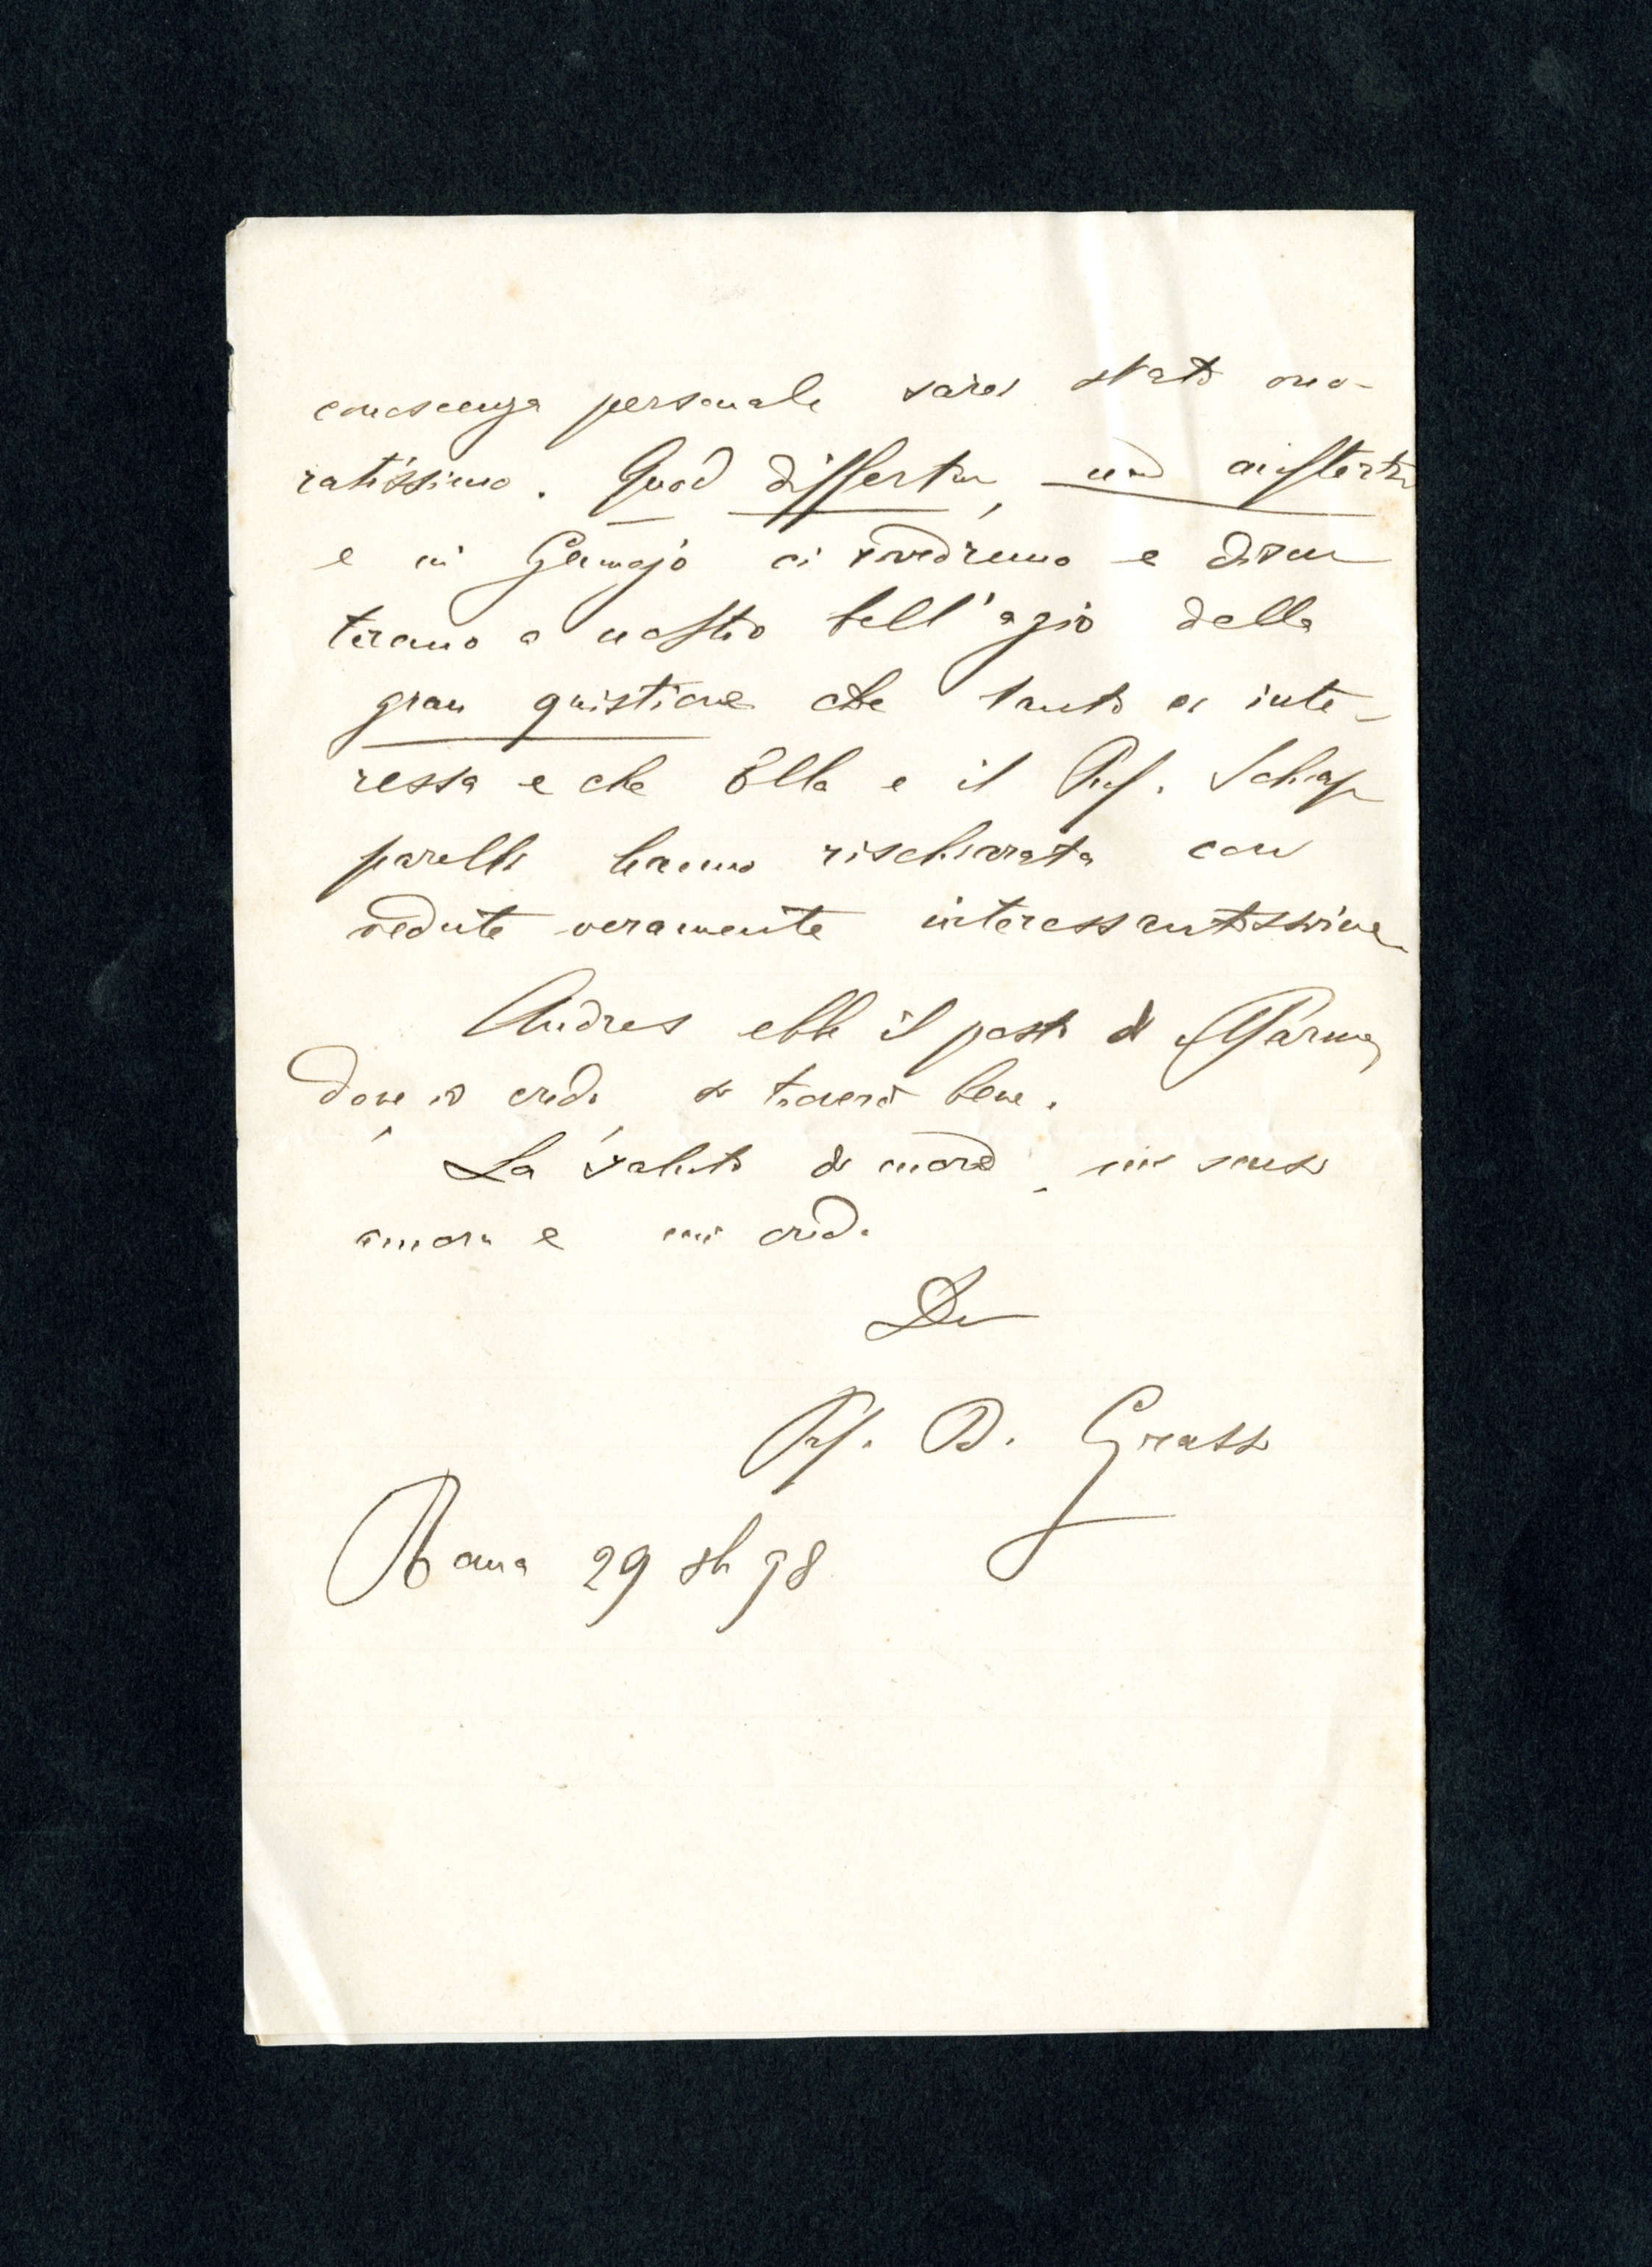 conoscenza personale sarei stato ono-
ratissimo. Quod differtur, non aufertur
e in Gennajo ci rivedremo e discu
teremo a nostro bell'agio della
gran quistione che tanto ci inte-
ressa e che Ella e il Prof. Schiap
parelli hanno rischiarata con
vedute veramente interessantissime
Andres ebbe il posto di Parma,
dove io credo si troverà bene.
La saluto di cuore, mi scusi
ancora e mi creda
Prof. B. Grassi
Roma 29 98